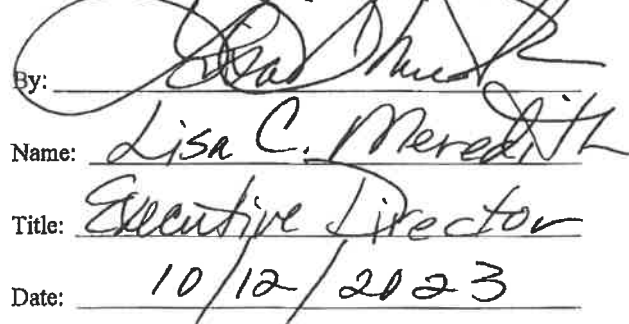 By: Lisa C. Meredith
Name: Lisa C. Meredith
Title: Executive Director
Date: 10/12/2023